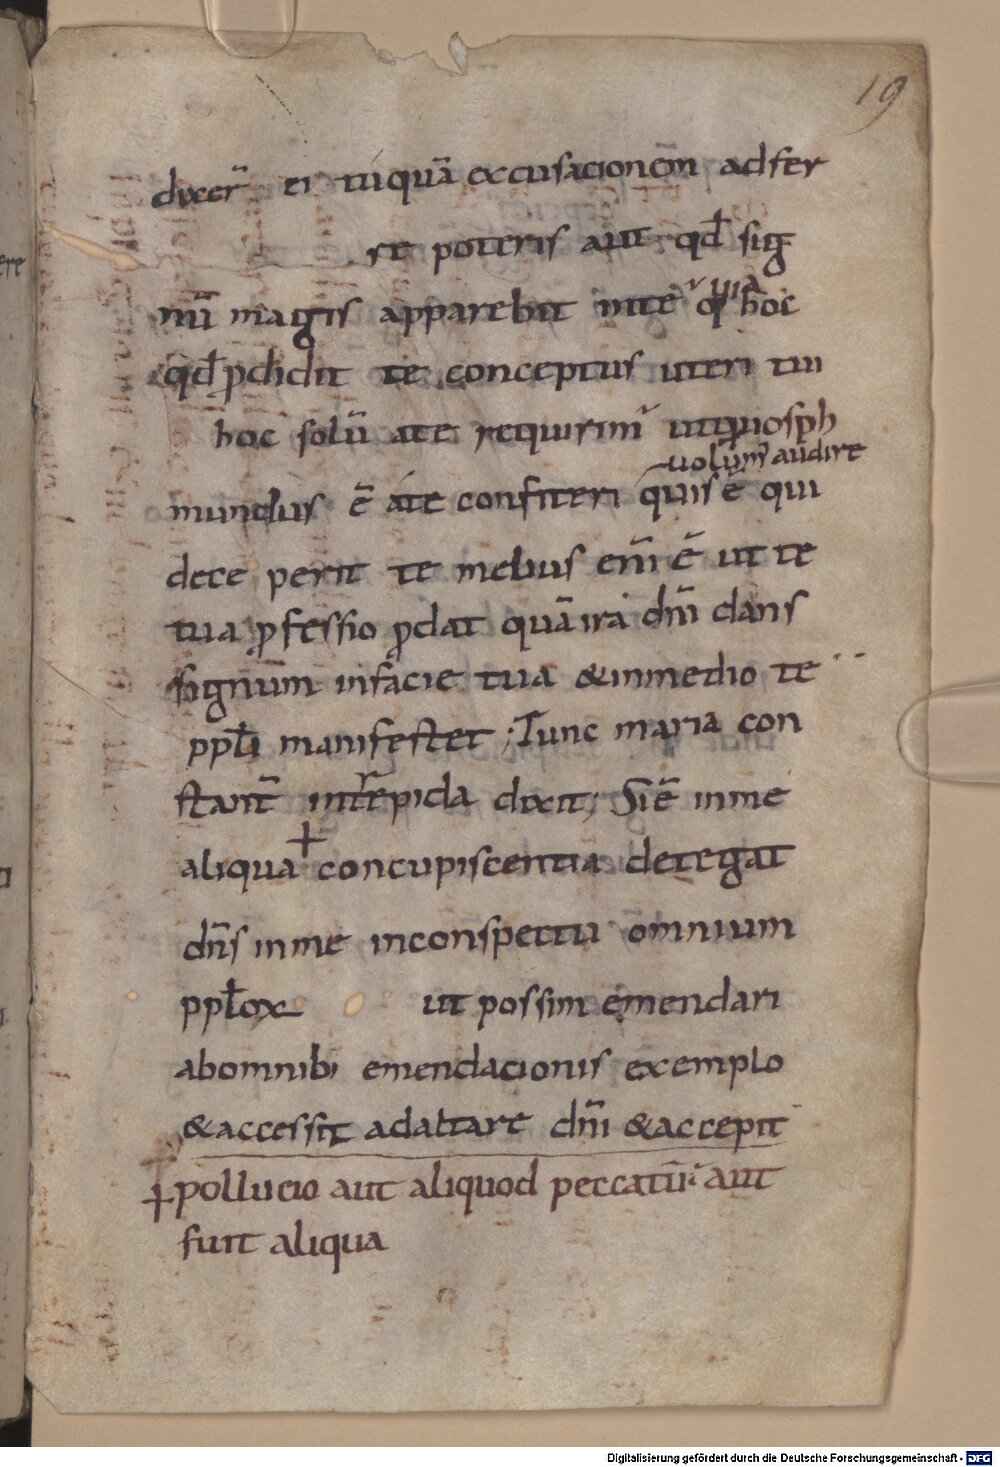 19
dixer̄ ei tu quā excusacionem adfer
re poteris aut qd̄ sig
nū magis apparebit in te q uia hoc
qd̄ pdidit te conceptus uteri tui
hoc solū a te requirim utquosph
uolum audire
mundus ē a te confiteri quis ē qui
dece perit te melius eni ē ut te
tua pfessio pdat quā ira dn̄i dans
signum infacie tua & inmedio te
ppl̄i manifestet ; Tunc maria con
stant̄ intrepida dixit ; Si ē inme
aliqua + concupiscentia detegat
dn̄s inme inconspectu omnium
ppl̄ox ut possim emendari
abomnibi emendacionis exemplo
& accessit adaltare dn̄i & accepit
+ pollucio aut aliquod peccatū aut
fuit aliqua
Digitalisierung gefördert durch die Deutsche Forschungsgemeinschaft - DFG